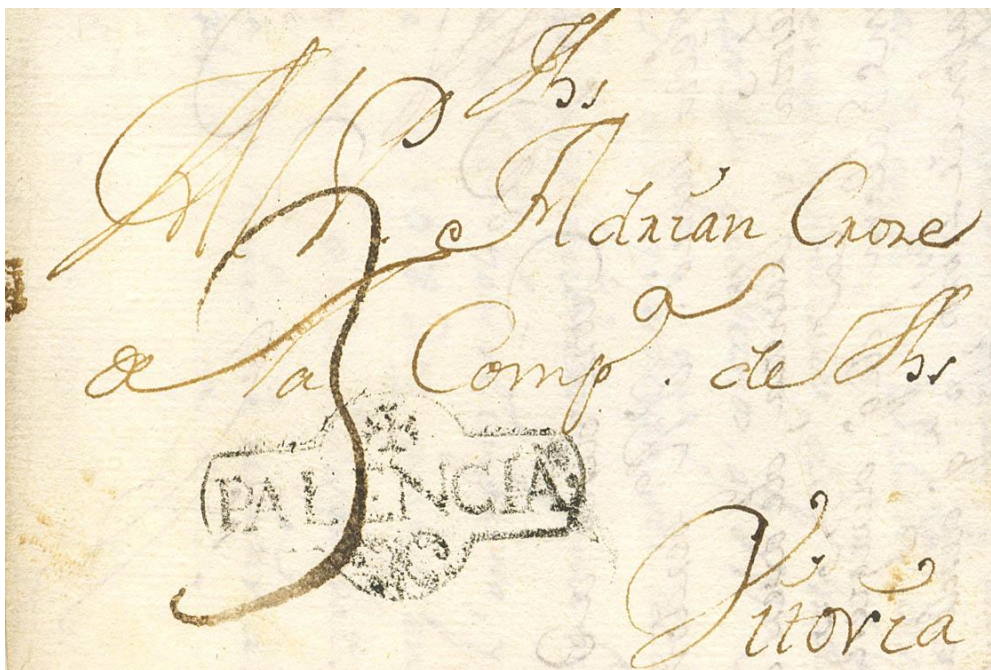 Jhs
Al P. e Adrian Croze
de la Comp.a de Jhs
3
PALENCIA
Vitoria